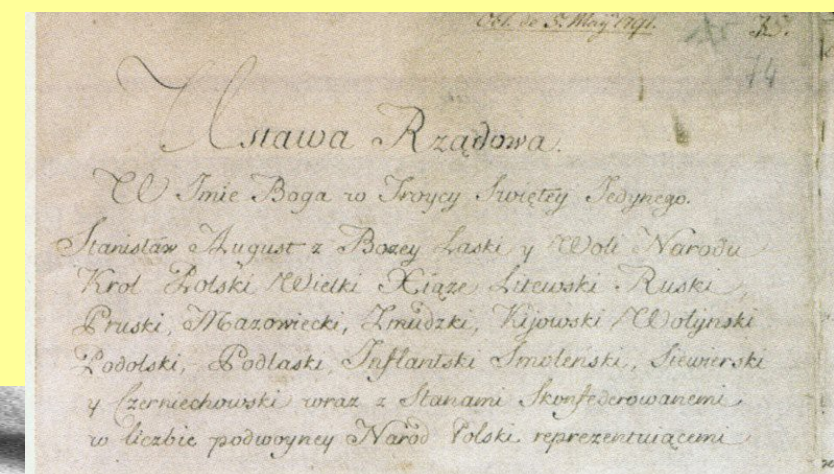 Obl. de 5. Maij 1791. 35.
74
Ustawa Rządowa.
W Imie Boga w Troycy Swiętey Jedynego.
Stanisław August z Bozey Łaski y Woli Narodu
Krol Polski Wielki Xiąze Litewski Ruski,
Pruski, Mazowiecki, Zmudzki, Kijowski Wołyński
Podolski, Podlaski, Inflantski Smoleński, Siewierski
y Czerniechowski wraz z Stanami Skonfederowanemi
w liczbie podwoyney Naród Polski reprezentuiącemi